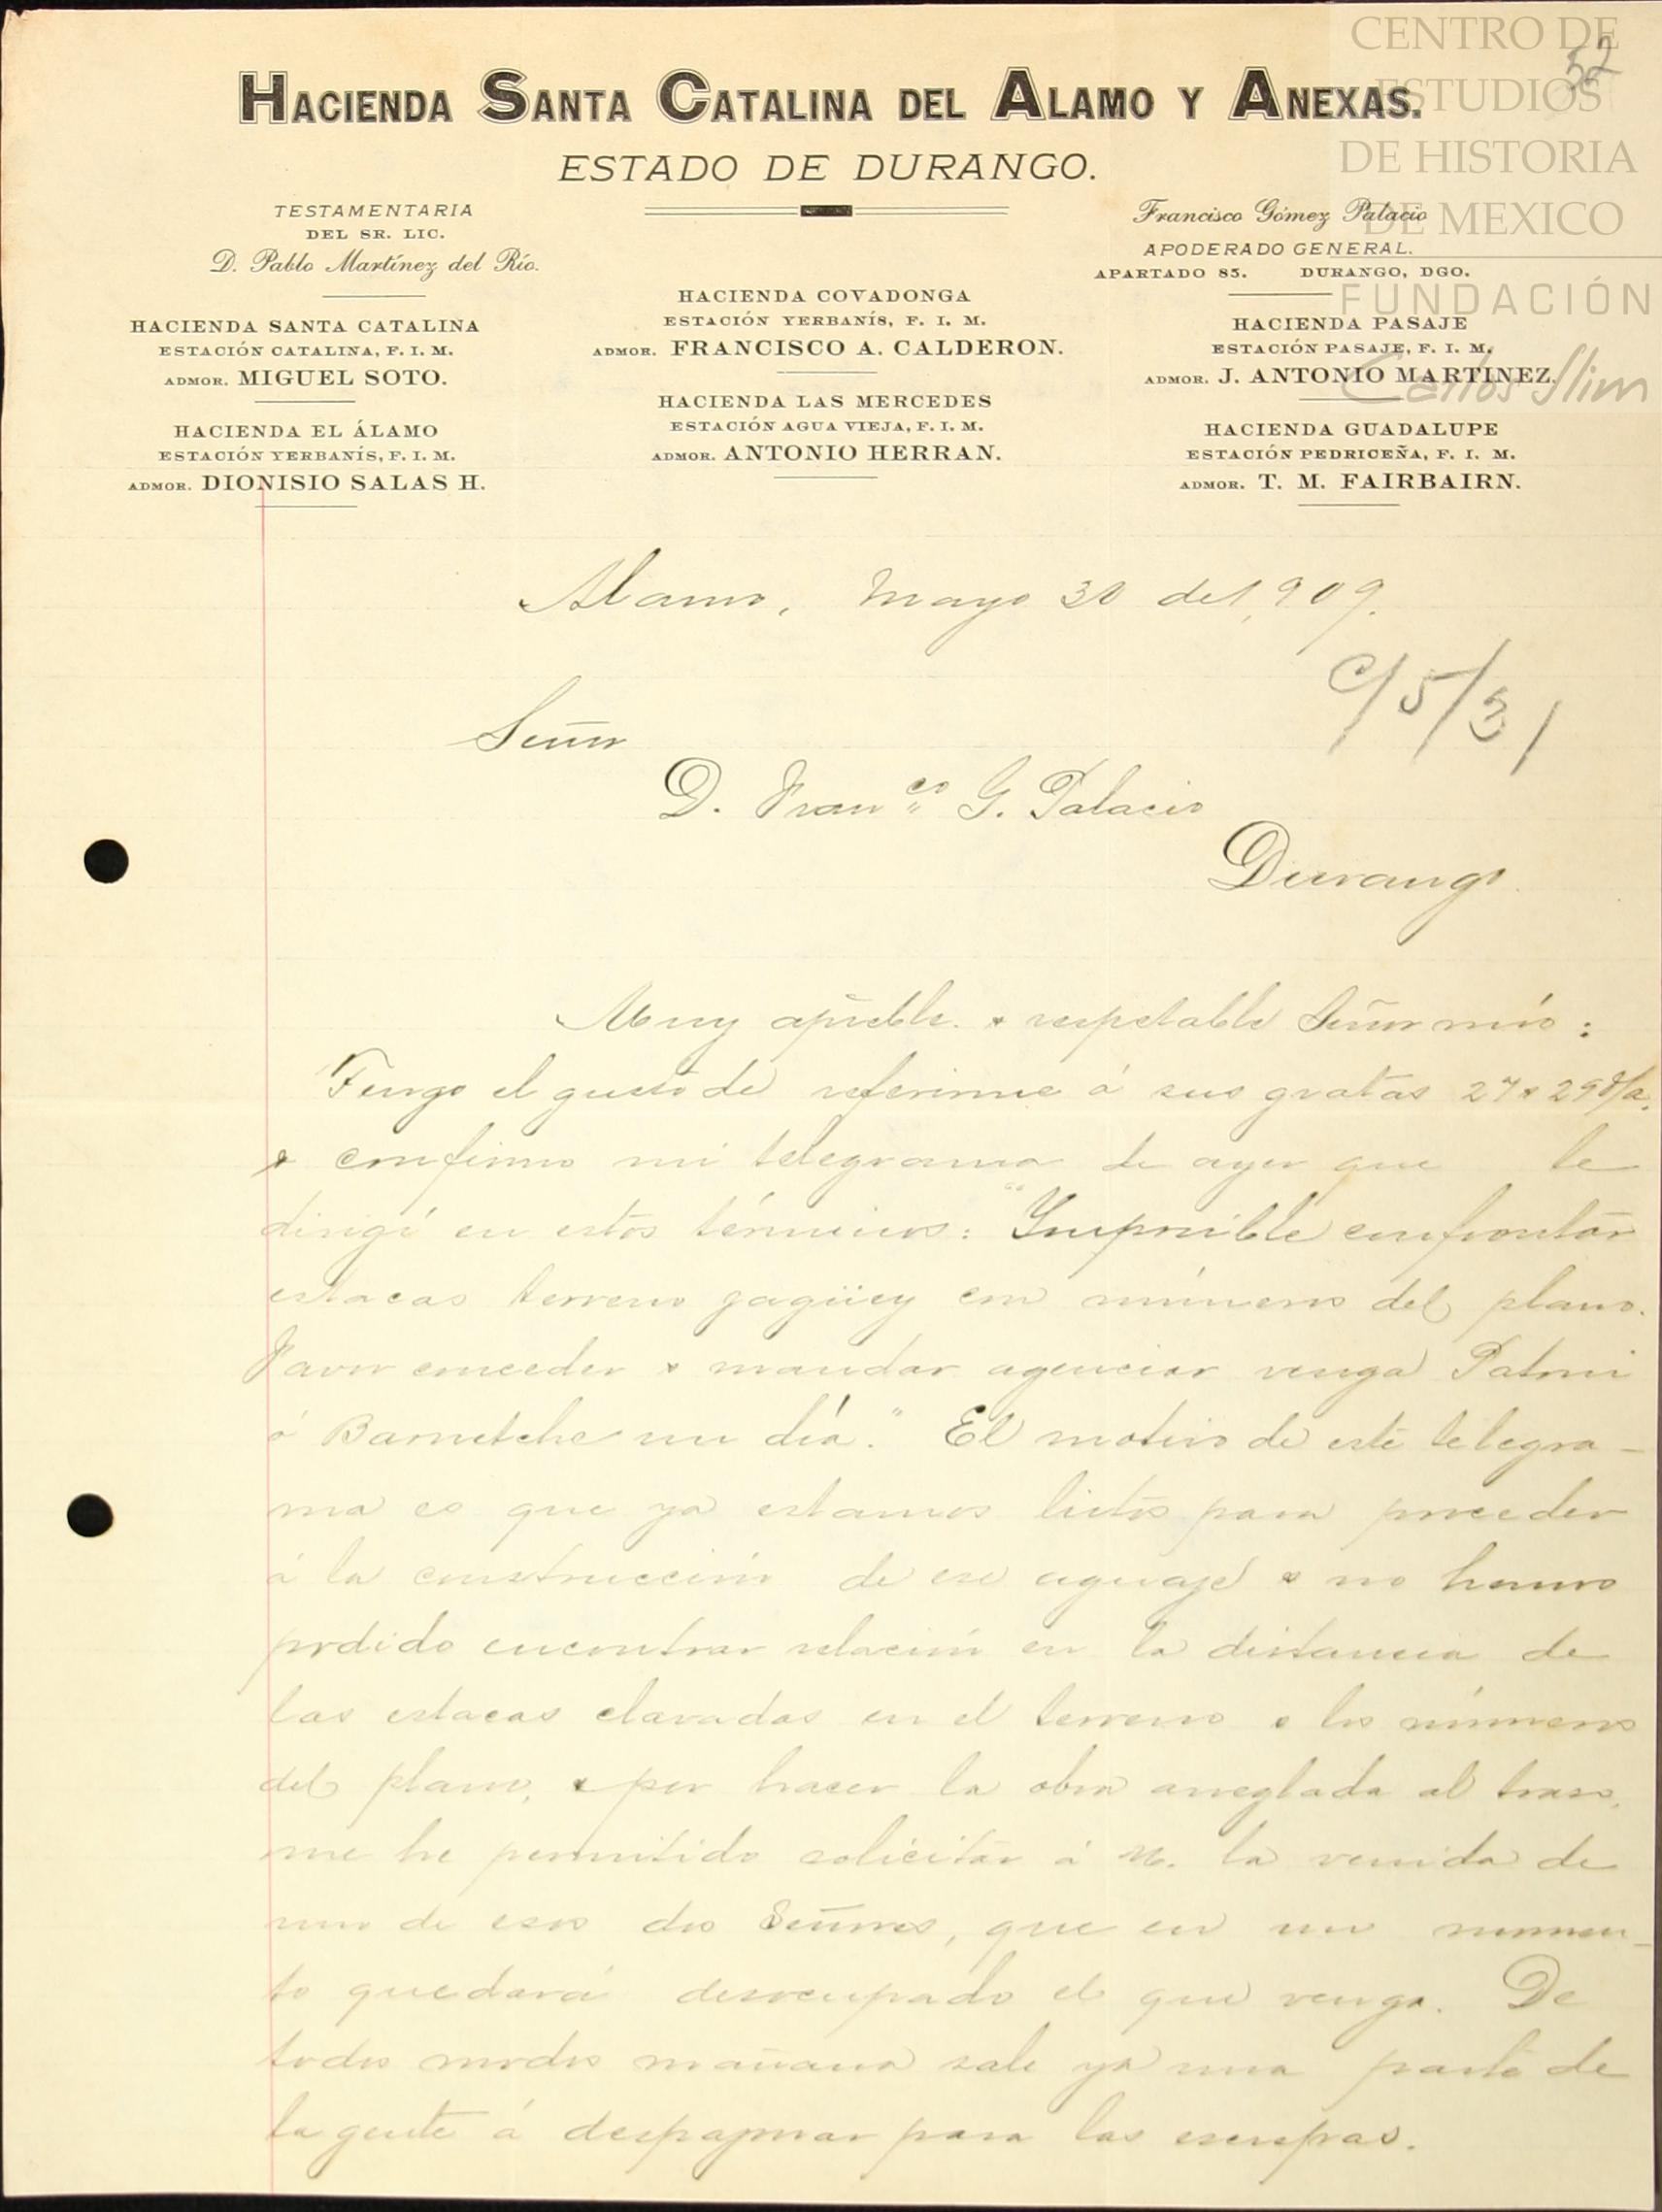 CENTRO DE
ESTUDIOS
DE HISTORIA
DE MEXICO
FUNDACIÓN
Carlos Slim
52
HACIENDA SANTA CATALINA DEL ALAMO Y ANEXAS.
ESTADO DE DURANGO.
TESTAMENTARIA
DEL SR. LIC.
D. Pablo Martínez del Río.
HACIENDA SANTA CATALINA
ESTACIÓN CATALINA, F. I. M.
ADMOR. MIGUEL SOTO.
HACIENDA EL ÁLAMO
ESTACIÓN YERBANÍS, F. I. M.
ADMOR. DIONISIO SALAS H.
HACIENDA COVADONGA
ESTACIÓN YERBANÍS, F. I. M.
ADMOR. FRANCISCO A. CALDERON.
HACIENDA LAS MERCEDES
ESTACIÓN AGUA VIEJA, F. I. M.
ADMOR. ANTONIO HERRAN.
Francisco Gómez Palacio
APODERADO GENERAL.
APARTADO 85. DURANGO, DGO.
HACIENDA PASAJE
ESTACIÓN PASAJE, F. I. M.
ADMOR. J. ANTONIO MARTINEZ.
HACIENDA GUADALUPE
ESTACIÓN PEDRICEÑA, F. I. M.
ADMOR. T. M. FAIRBAIRN.
Alamo, Mayo 30 de 1,909.
C/5/31
Señor
D. Franco G. Palacio
Durango.
Muy apreble. y respetable Señor mío:
Tengo el gusto de referirme á sus gratas 27 y 29
y confirmo mi telegrama de ayer que le
dirigí en estos términos: "Imposible confrontar
estacas terreno jagüey con números del plano.
Favor conceder y mandar agenciar venga Patoni
ó Barnetche un día." El motivo de este telegra-
ma es que ya estamos listos para proceder
á la construcción de ese aguaje y no hemos
podido encontrar relación en la distancia de
las estacas clavadas en el terreno y los números
del plano, y por hacer la obra arreglada al trazo,
me he permitido solicitar á U. la venida de
uno de esos dos Señores, que en un momen-
to quedará desocupado el que venga. De
todos modos mañana sale ya una parte de
la gente á despajonar para las escrepas.